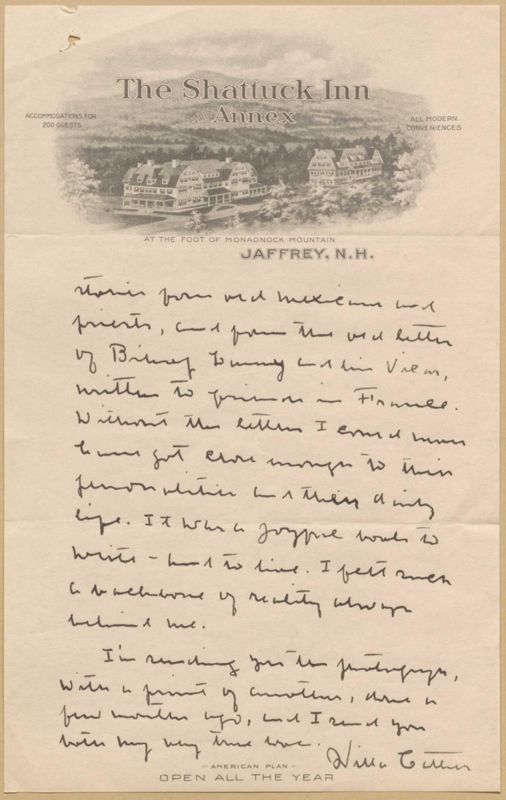 The Shattuck Inn
and Annex
ACCOMMODATIONS FOR
200 GUESTS
ALL MODERN
CONVENIENCES
AT THE FOOT OF MONADNOCK MOUNTAIN
JAFFREY, N.H.
stories from old Mexicans and
priests, and from the old letters
of Bishop Lamy and his Vicar,
written to friends in France.
Without the letters I could never
have got close enough to their
personalities and their daily
life. It was a joyful book to
write - and to live. I felt such
a backbone of reality always
behind me.
I'm sending you the photograph,
with a print of another, done a
few months ago, and I send you
with my very true love.
Willa Cather
AMERICAN PLAN
OPEN ALL THE YEAR